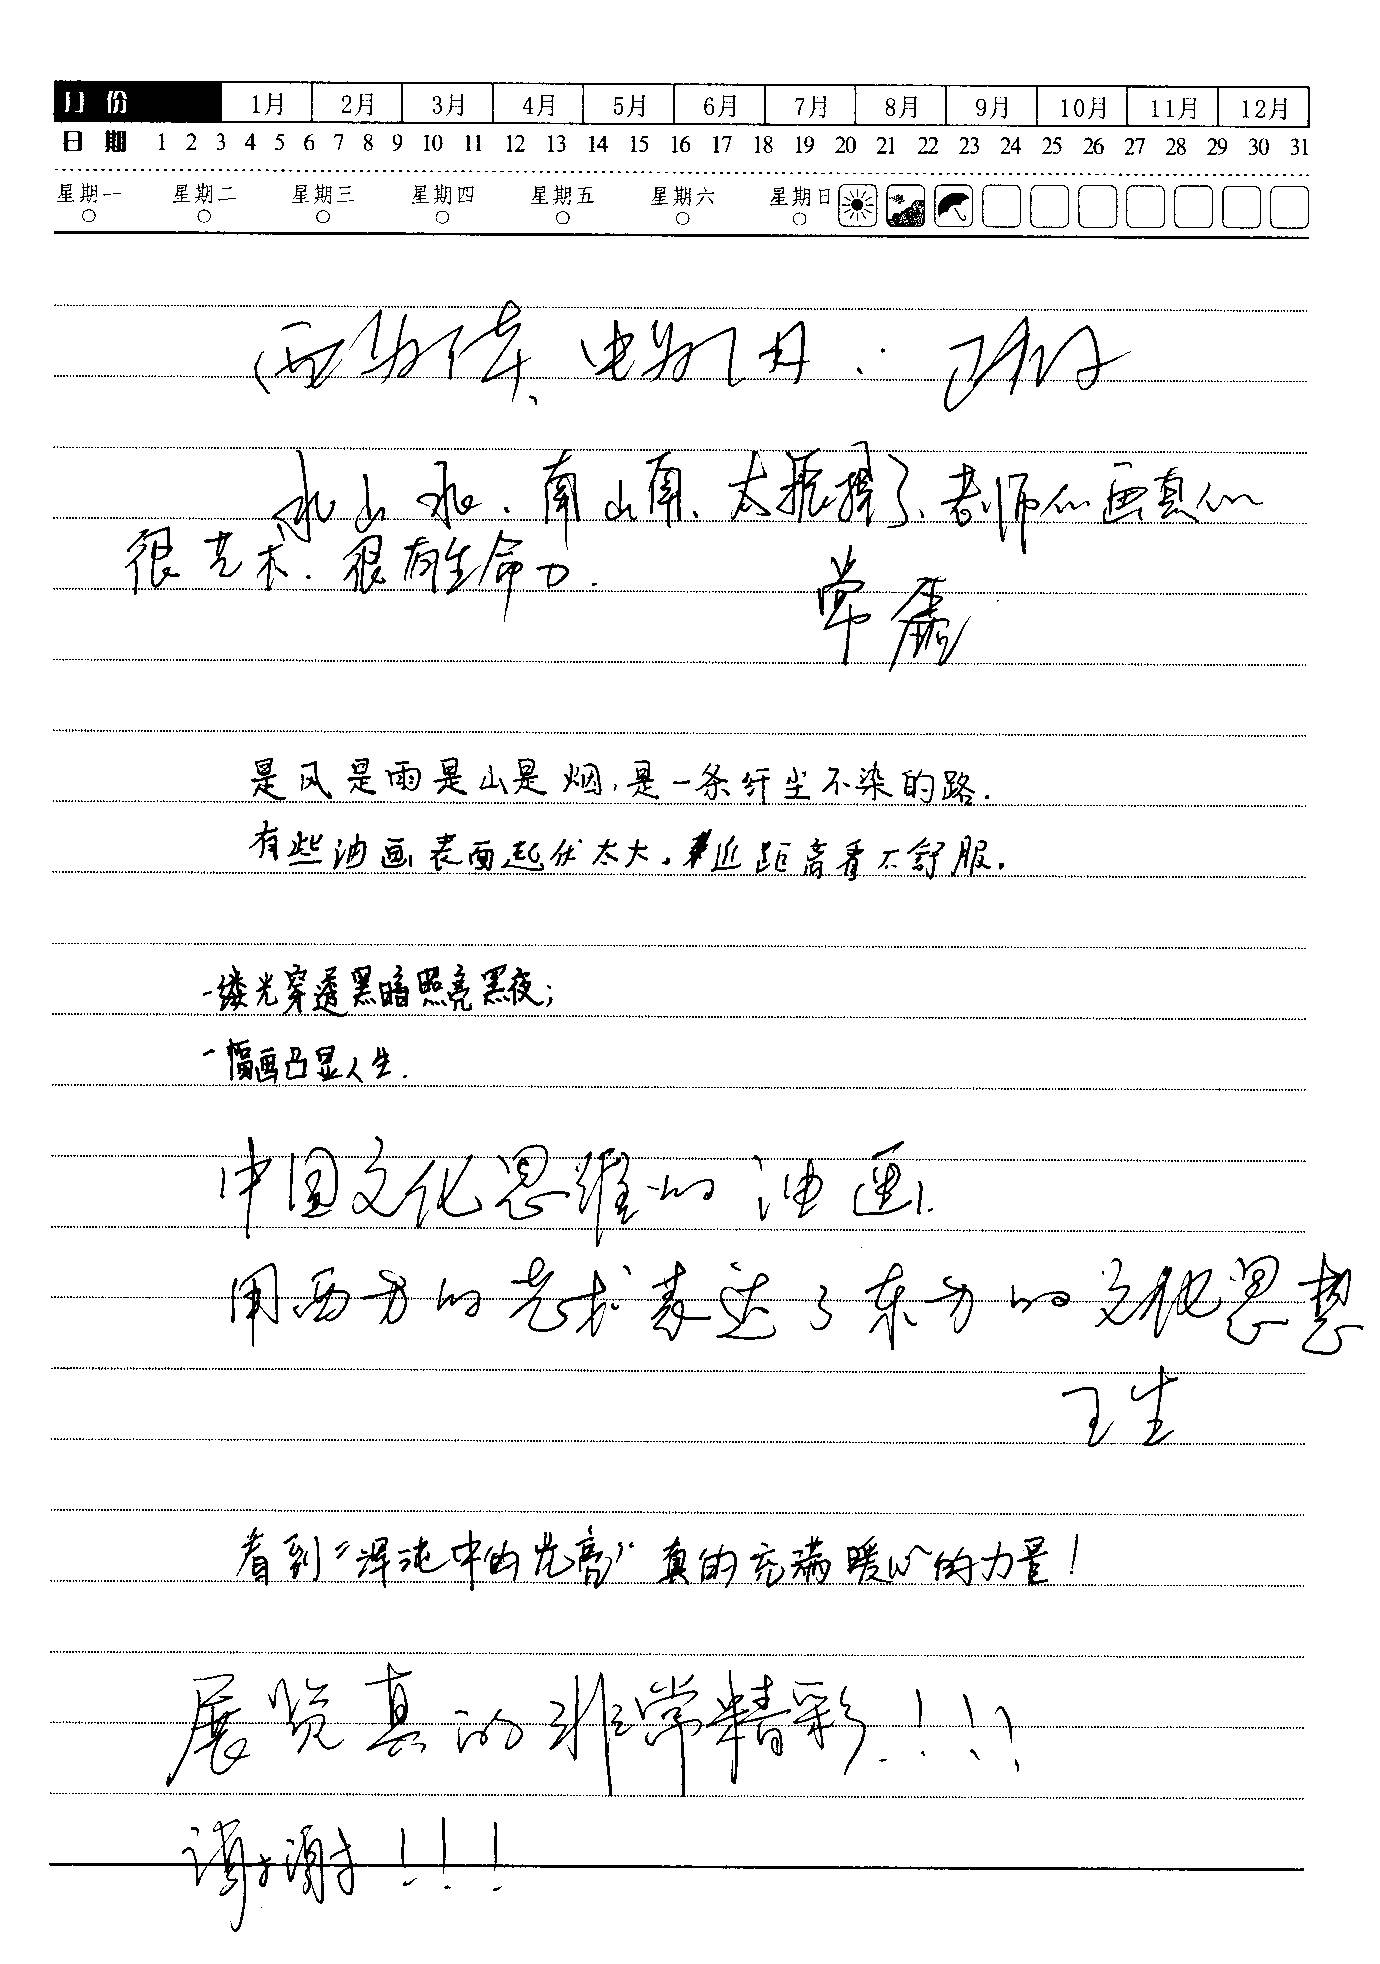 月份 1月 2月 3月 4月 5月 6月 7月 8月 9月 10月 11月 12月
日期 1 2 3 4 5 6 7 8 9 10 11 12 13 14 15 16 17 18 19 20 21 22 23 24 25 26 27 28 29 30 31
星期一 星期二 星期三 星期四 星期五 星期六 星期日
水山水.南山南.太振撼了.老师的画真的
很艺术.很有生命力.
常
是风是雨是山是烟,是一条纤尘不染的路.
有些油画表面起伏太大。近距离看不舒服.
一缕光穿透黑暗照亮黑夜;
一幅画凸显人生.
中国文化思维的油画.
用西方的艺术表达了东方的文化思想
王生
看到"浑沌中的光亮"真的充满暖心的力量!
展览真的非常精彩!!!
谢谢!!!